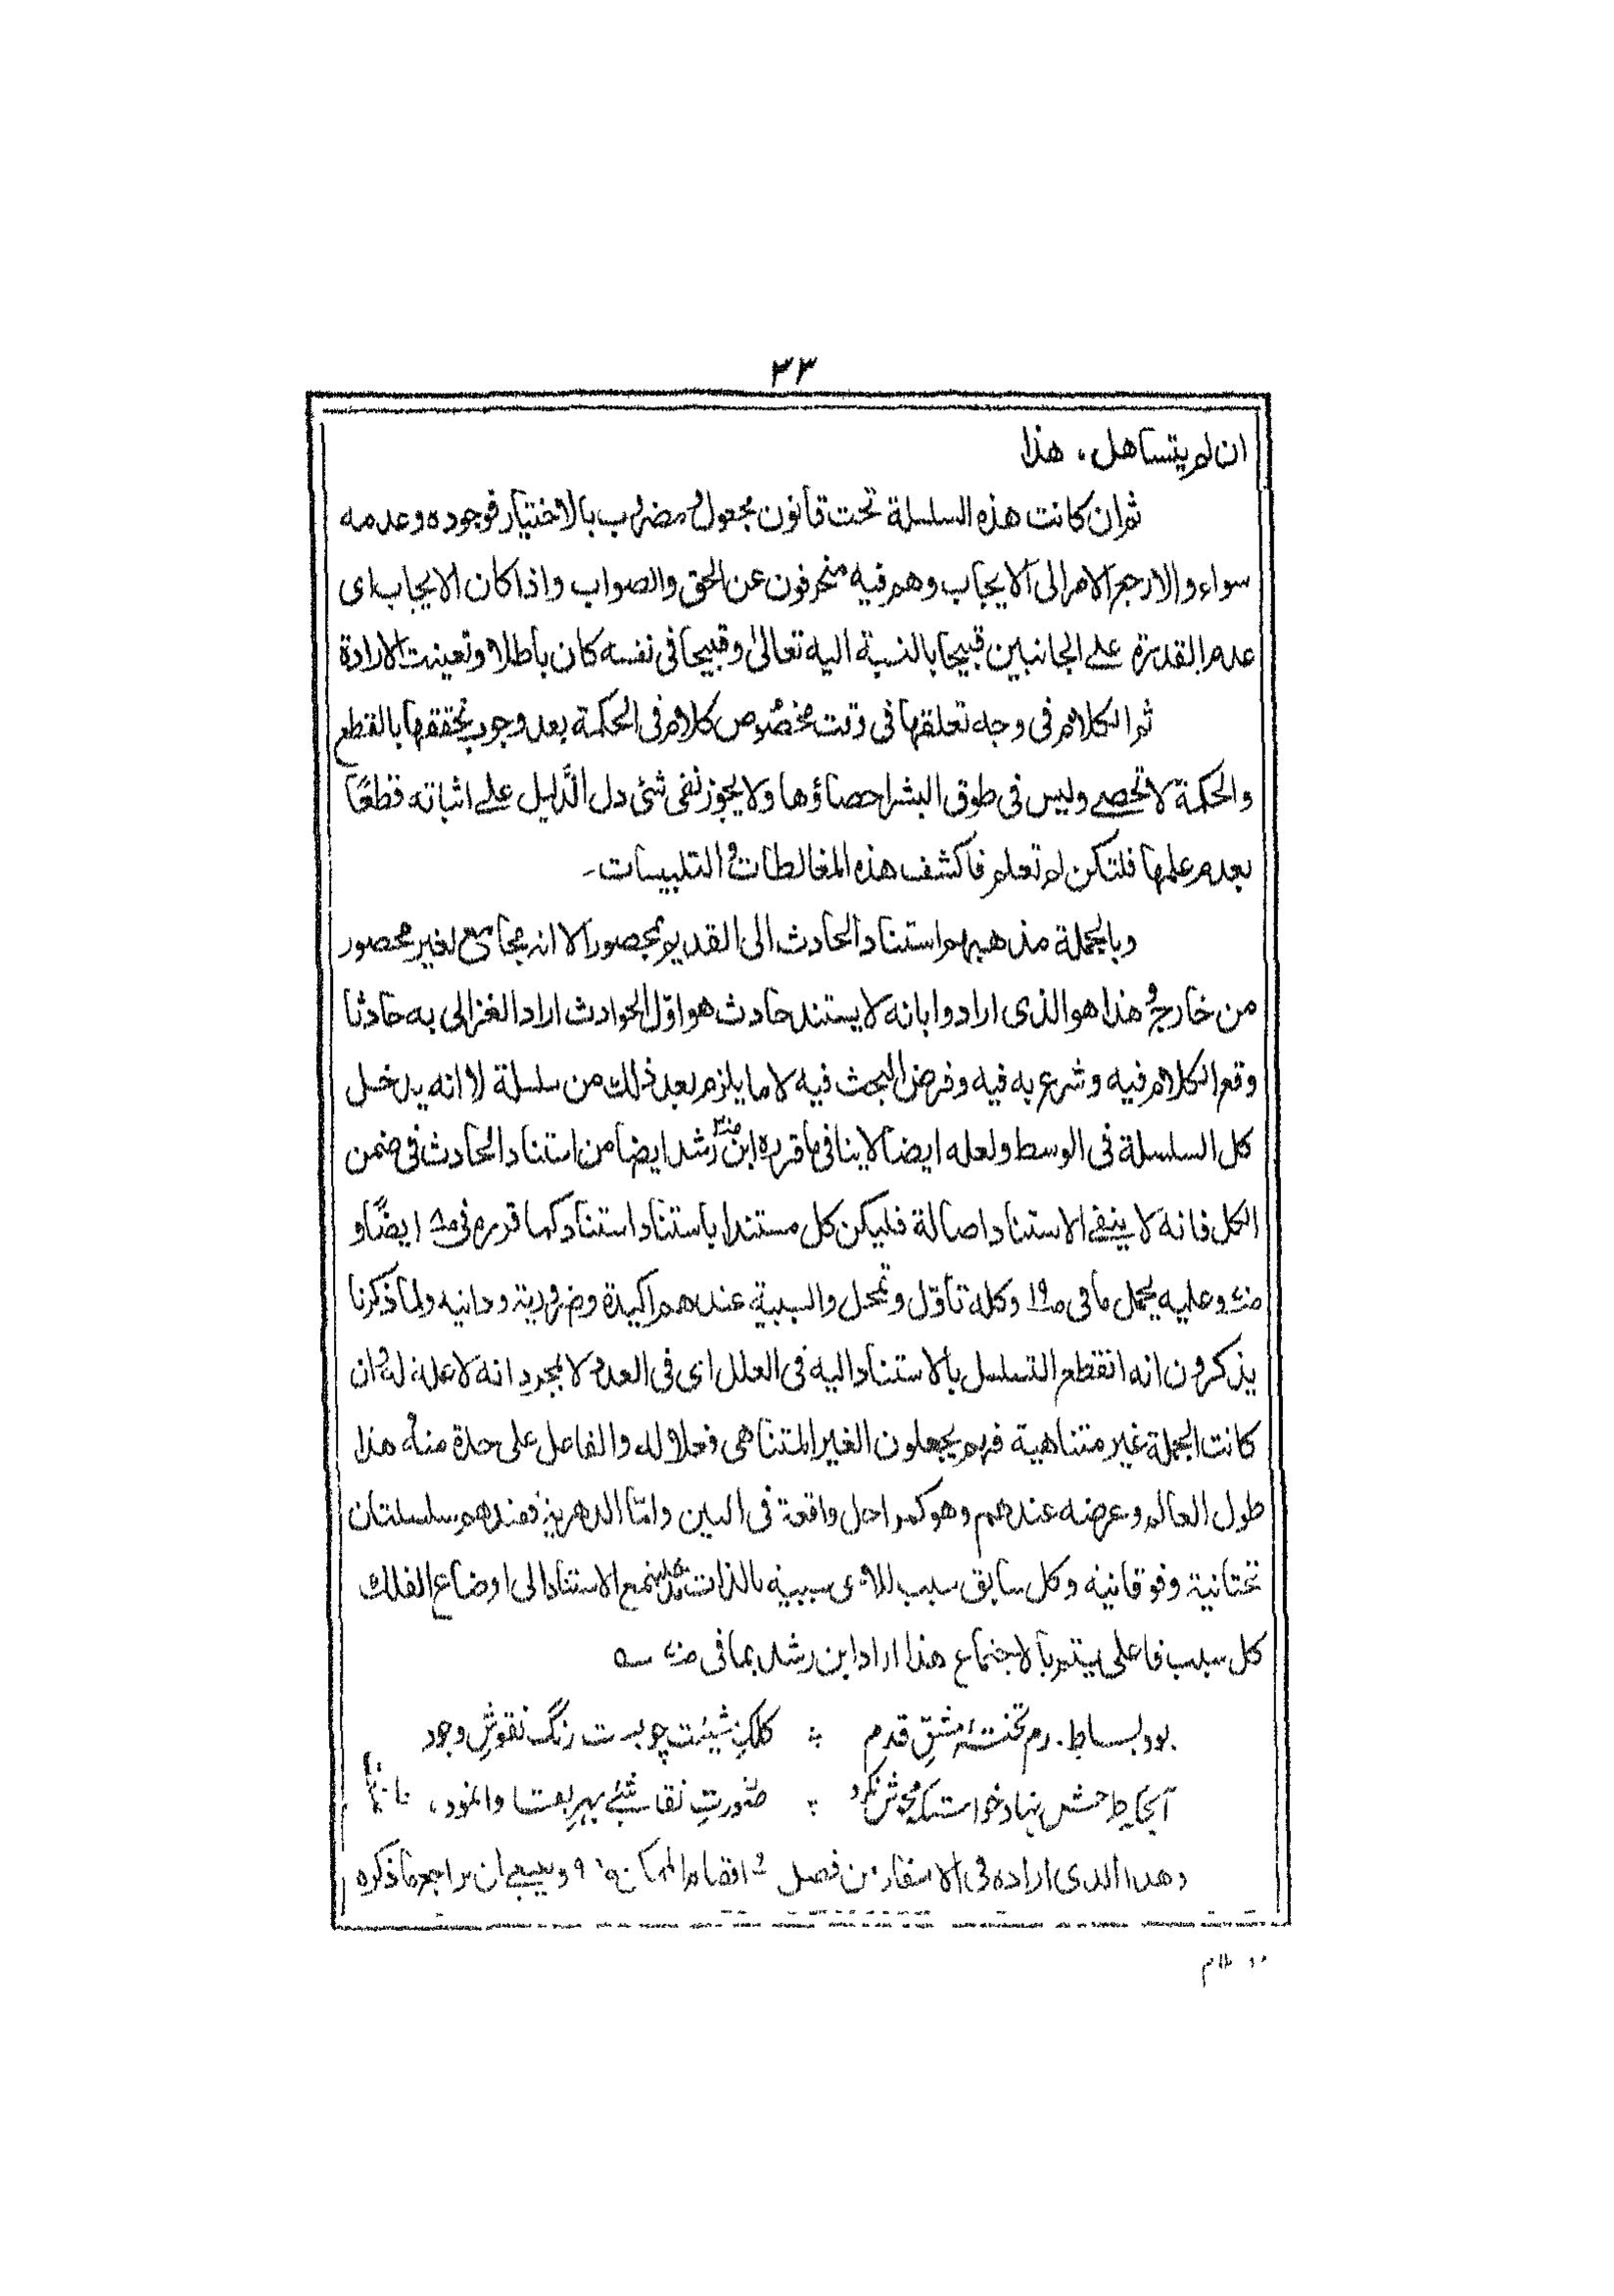 ٣٣
ان لم يتساهل، هذا
ثم ان كانت هذه السلسلة تحت قانون مجعول مضروب بالاختيار فوجوده وعدمه
سواء والا رجع الامر الى الايجاب وهم فيه منحرفون عن الحق والصواب واذا كان الايجاب اى
عدم القدرة على الجانبين قبيحا بالنسبة اليه تعالىٰ وقبيحا فى نفسه كان باطلا وتعينت الارادة
ثم الكلام فى وجه تعلقها فى وقت مخصوص كلام فى الحكمة بعد وجوب تحققها بالقطع
والحكمة لا تحصى وليس فى طوق البشر احصاؤها ولا يجوز نفى شئ دل الدليل على اثباته قطعًا
بعدم علمها فلتكن لم تعلم فاكشف هذه المغالطات و التلبيسات۔
وبالجملة مذهبهم استناد الحادث الى القديم بمحصور الا انه مجامع لغير محصور
من خارج و هذا هو الذى ارادوا بانه لا يستند حادث هو اوّل الحوادث اراد الغزالى به حادثا
وقع الكلام فيه وشرع به فيه وفرض البحث فيه لا ما يلزم بعد ذلك من سلسلة لا انه يدخل
كل السلسلة فى الوسط ولعله ايضا لا ينافى ما قرره ابن رشد ايضا من استناد الحادث فى ضمن
الكل فانه لا ينفى الاستناد اصالة فليكن كل مستندا باستناد استناد كما قرره فى ايضًا و
وعليه يحمل ما فى ص١٩ وكله تأوّل وتمحل والسببية عندهم اكيدة وضرورية ودانيه ولما ذكرنا
يذكرون انه انقطع التسلسل بالاستناد اليه فى العلل اى فى العدد لا بمجرد انه لا علة له و ان
كانت الجملة غير متناهية فهم يجعلون الغير المتناهى فعلا له والفاعل على حدة منه و هذا
طول العالم وعرضه عندهم وهو كمراحل واقعة فى البين واما الدهرية فعندهم سلسلتان
تحتانية وفوقانيه وكل سابق سبب للاحق سببيه بالذات مع الاستناد الى اوضاع الفلك
كل سبب فاعلى يعتبر بالاجتماع هذا اراد ابن رشد بما فى
بود بساط عدم تختۂ مشقِ قدم ؞ كلكِ مشيّت چو بست رنگ نقوشِ وجود
نهاد خواست كه محوش نكرد ؞ صورتِ نقاشئے بهرِ بقا وانمود،
وهذا الذى اراده فى الاسفار من فصل وينبغى ان يراجع ما ذكره